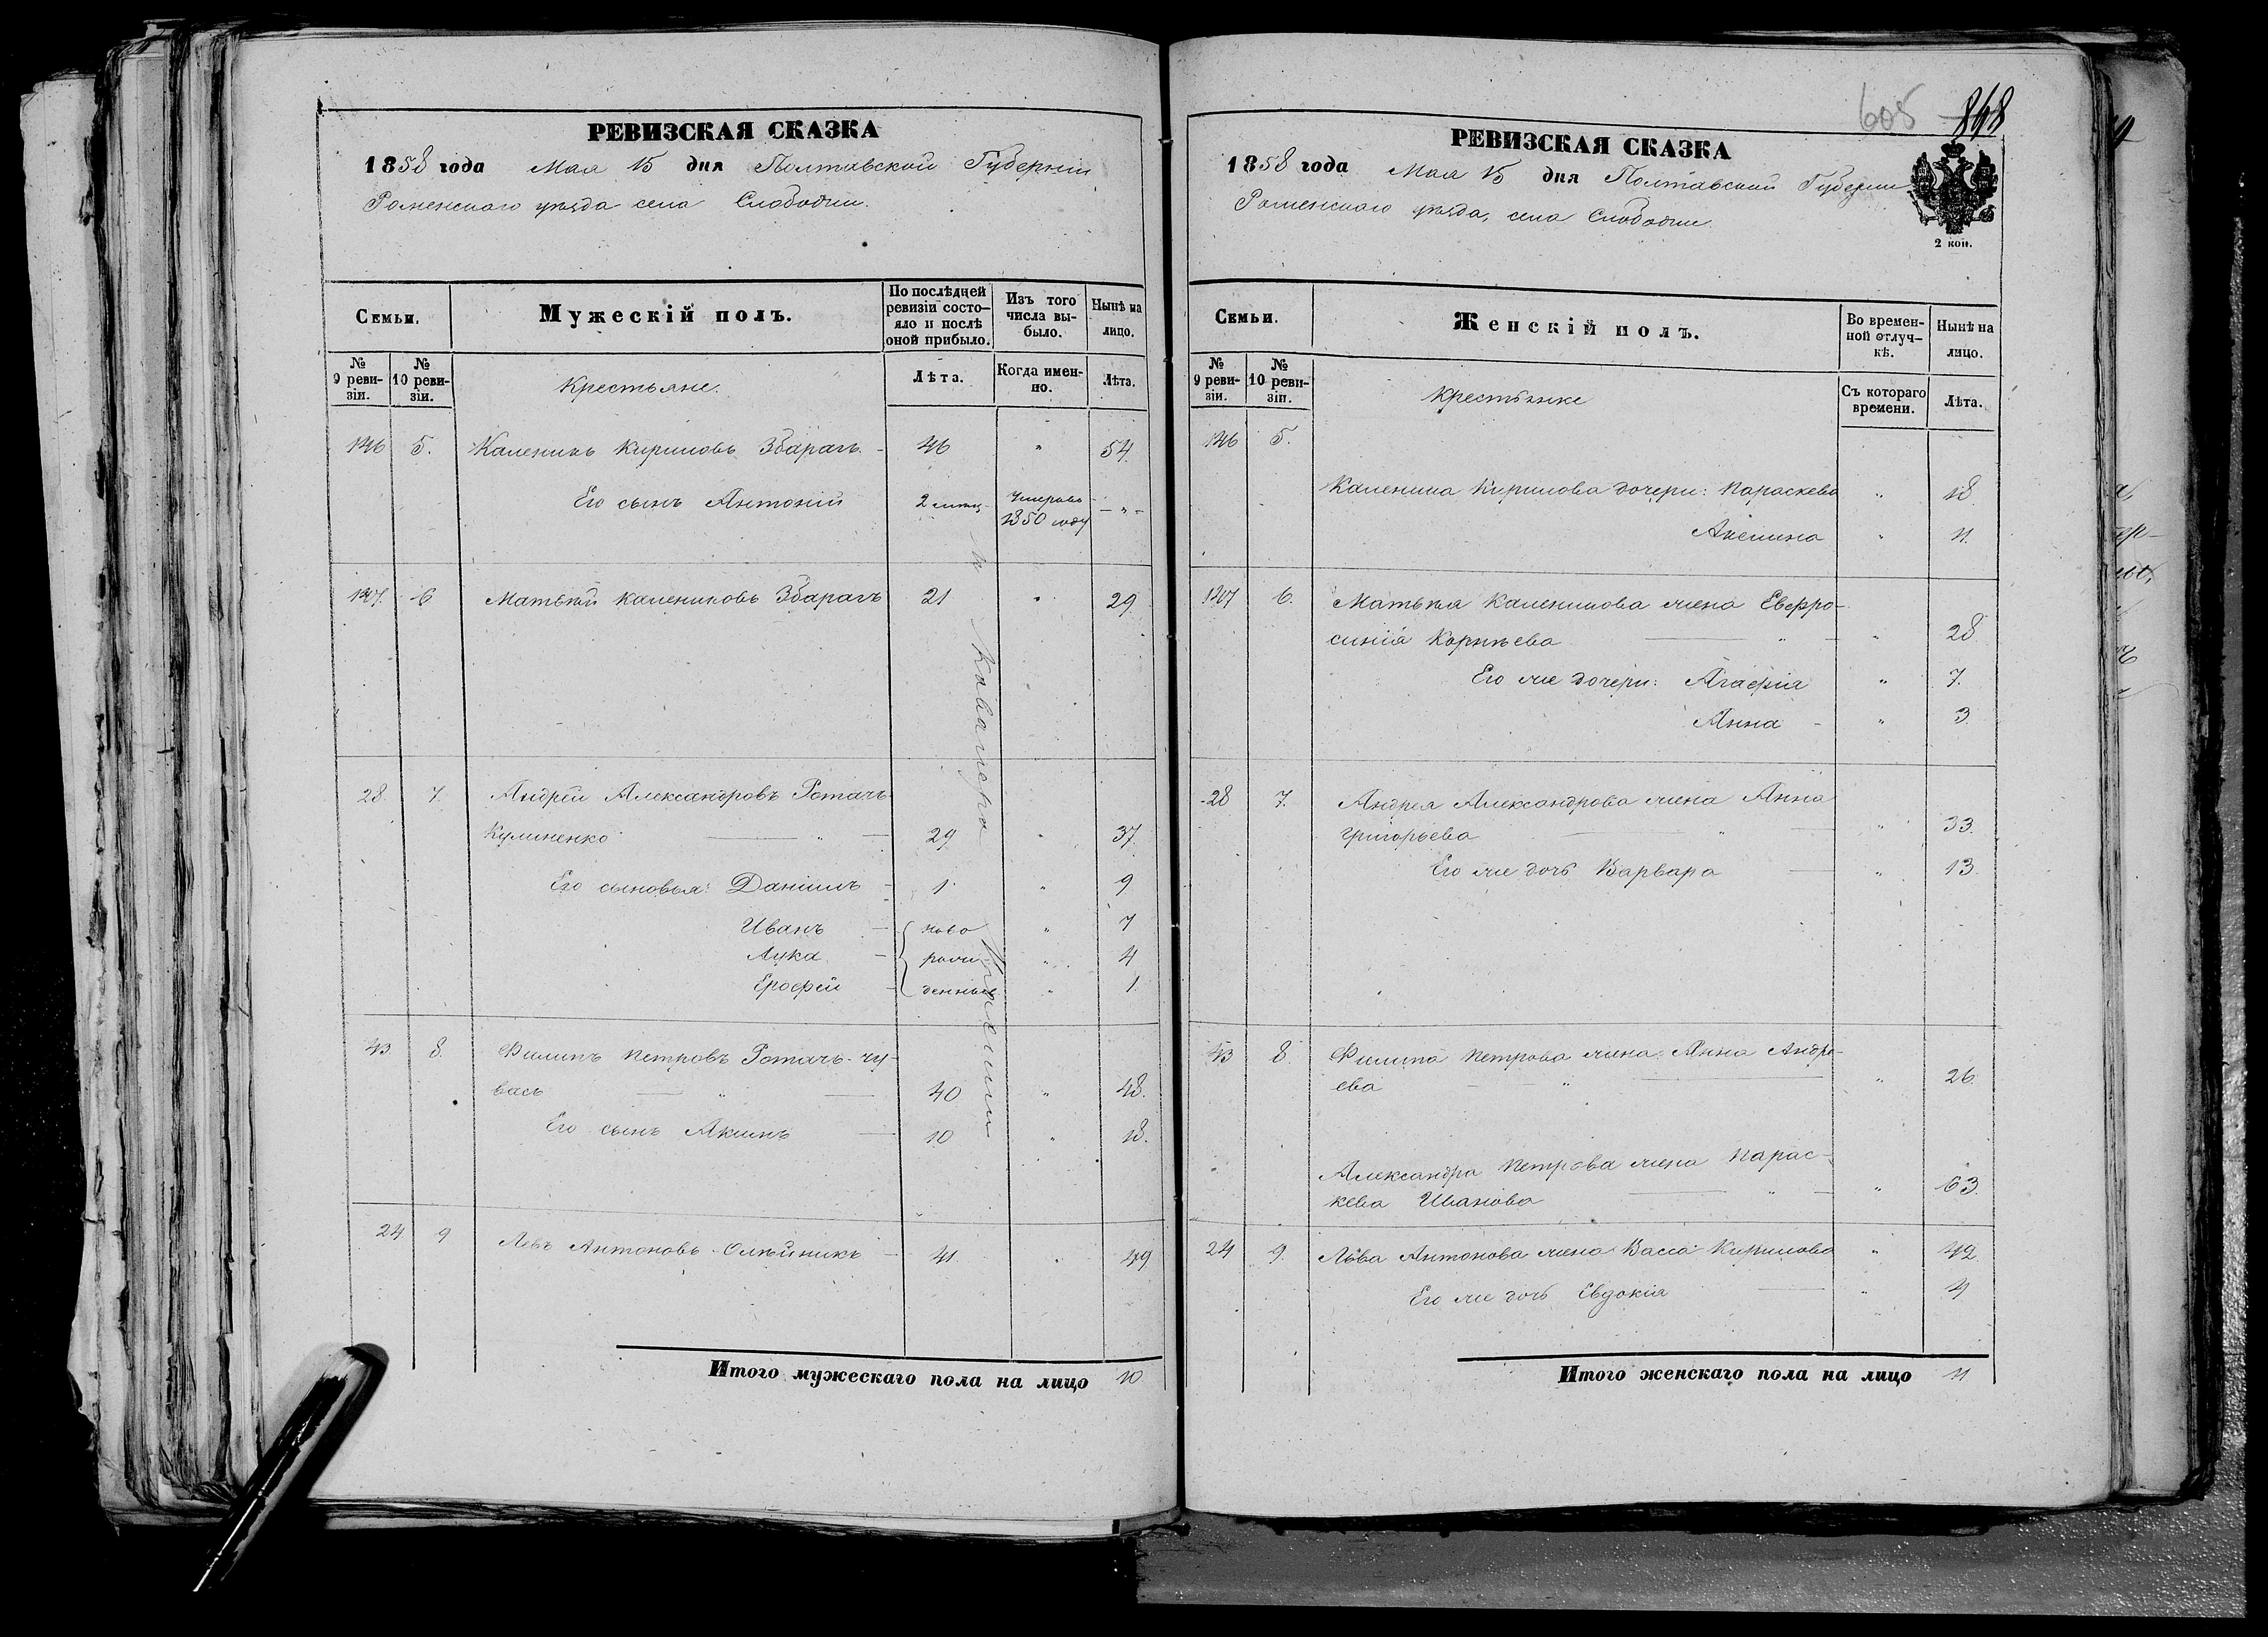 РЕВИЗСКАЯ СКАЗКА
1858 года Мая 15 дня Полтавской Губерніи
Роменскаго уѣзда села Слободки.
Семьи.
Мужескій полъ.
По послѣдней ревизіи состояло и послѣ оной прибыло.
Изъ того числа выбыло.
Нынѣ на лицо.
№ 9 ревизіи.
№ 10 ревизіи.
Крестьяне.
Лѣта.
Когда именно.
Лѣта.
146 5. Каленикъ Кириловъ Збарагъ - 46 " 54
Его сынъ Антоній 2 Умеръ въ 1850 году - " -
147. 6 Матвѣй Калениковъ Збарагъ 21 " 29
28 7. Андрей Александровъ Ротачъ
Кулиненко " 29 " 37.
Его сыновья: Даніилъ - 1 " 9
Иванъ - ново " 7
Лука - рож " 4
Ерофей - денные " 1
43. 8. Филипъ Петровъ Ротачъ-Чу-
вась " 40 " 48.
Его сынъ Акимъ 10 " 18.
24 9 Левъ Антоновъ Олѣйникъ - 41. " 49
Итого мужескаго пола на лицо 10
605 868
РЕВИЗСКАЯ СКАЗКА
1858 года Мая 15 дня Полтавской Губерніи
Роменскаго уѣзда, села Слободки.
2 коп.
Семьи.
Женскій полъ.
Во временной отлучкѣ.
Нынѣ на лицо.
№ 9 ревизіи.
№ 10 ревизіи.
Крестьянке
Съ котораго времени.
Лѣта.
146 5.
Каленика Кирилова дочери: Параскева " 18
Акелина " 11.
147 6. Матвѣя Каленикова жена Евфро-
синія Корнѣева " - " 28
Его же дочери: Агафія " 7.
Анна - " 3
28 7. Андрея Александрова жена Анна
Григорьева " " 33.
Его же дочь Варвара " 13.
43 8. Филипа Петрова жена: Анна Андре-
ева " " 26.
Александра Петрова жена Парас-
кева Иванова " - " 63.
24 9. Льва Антонова жена Васса Кирилова " 42
Его же дочь Евдокія " 4
Итого женскаго пола на лицо 11